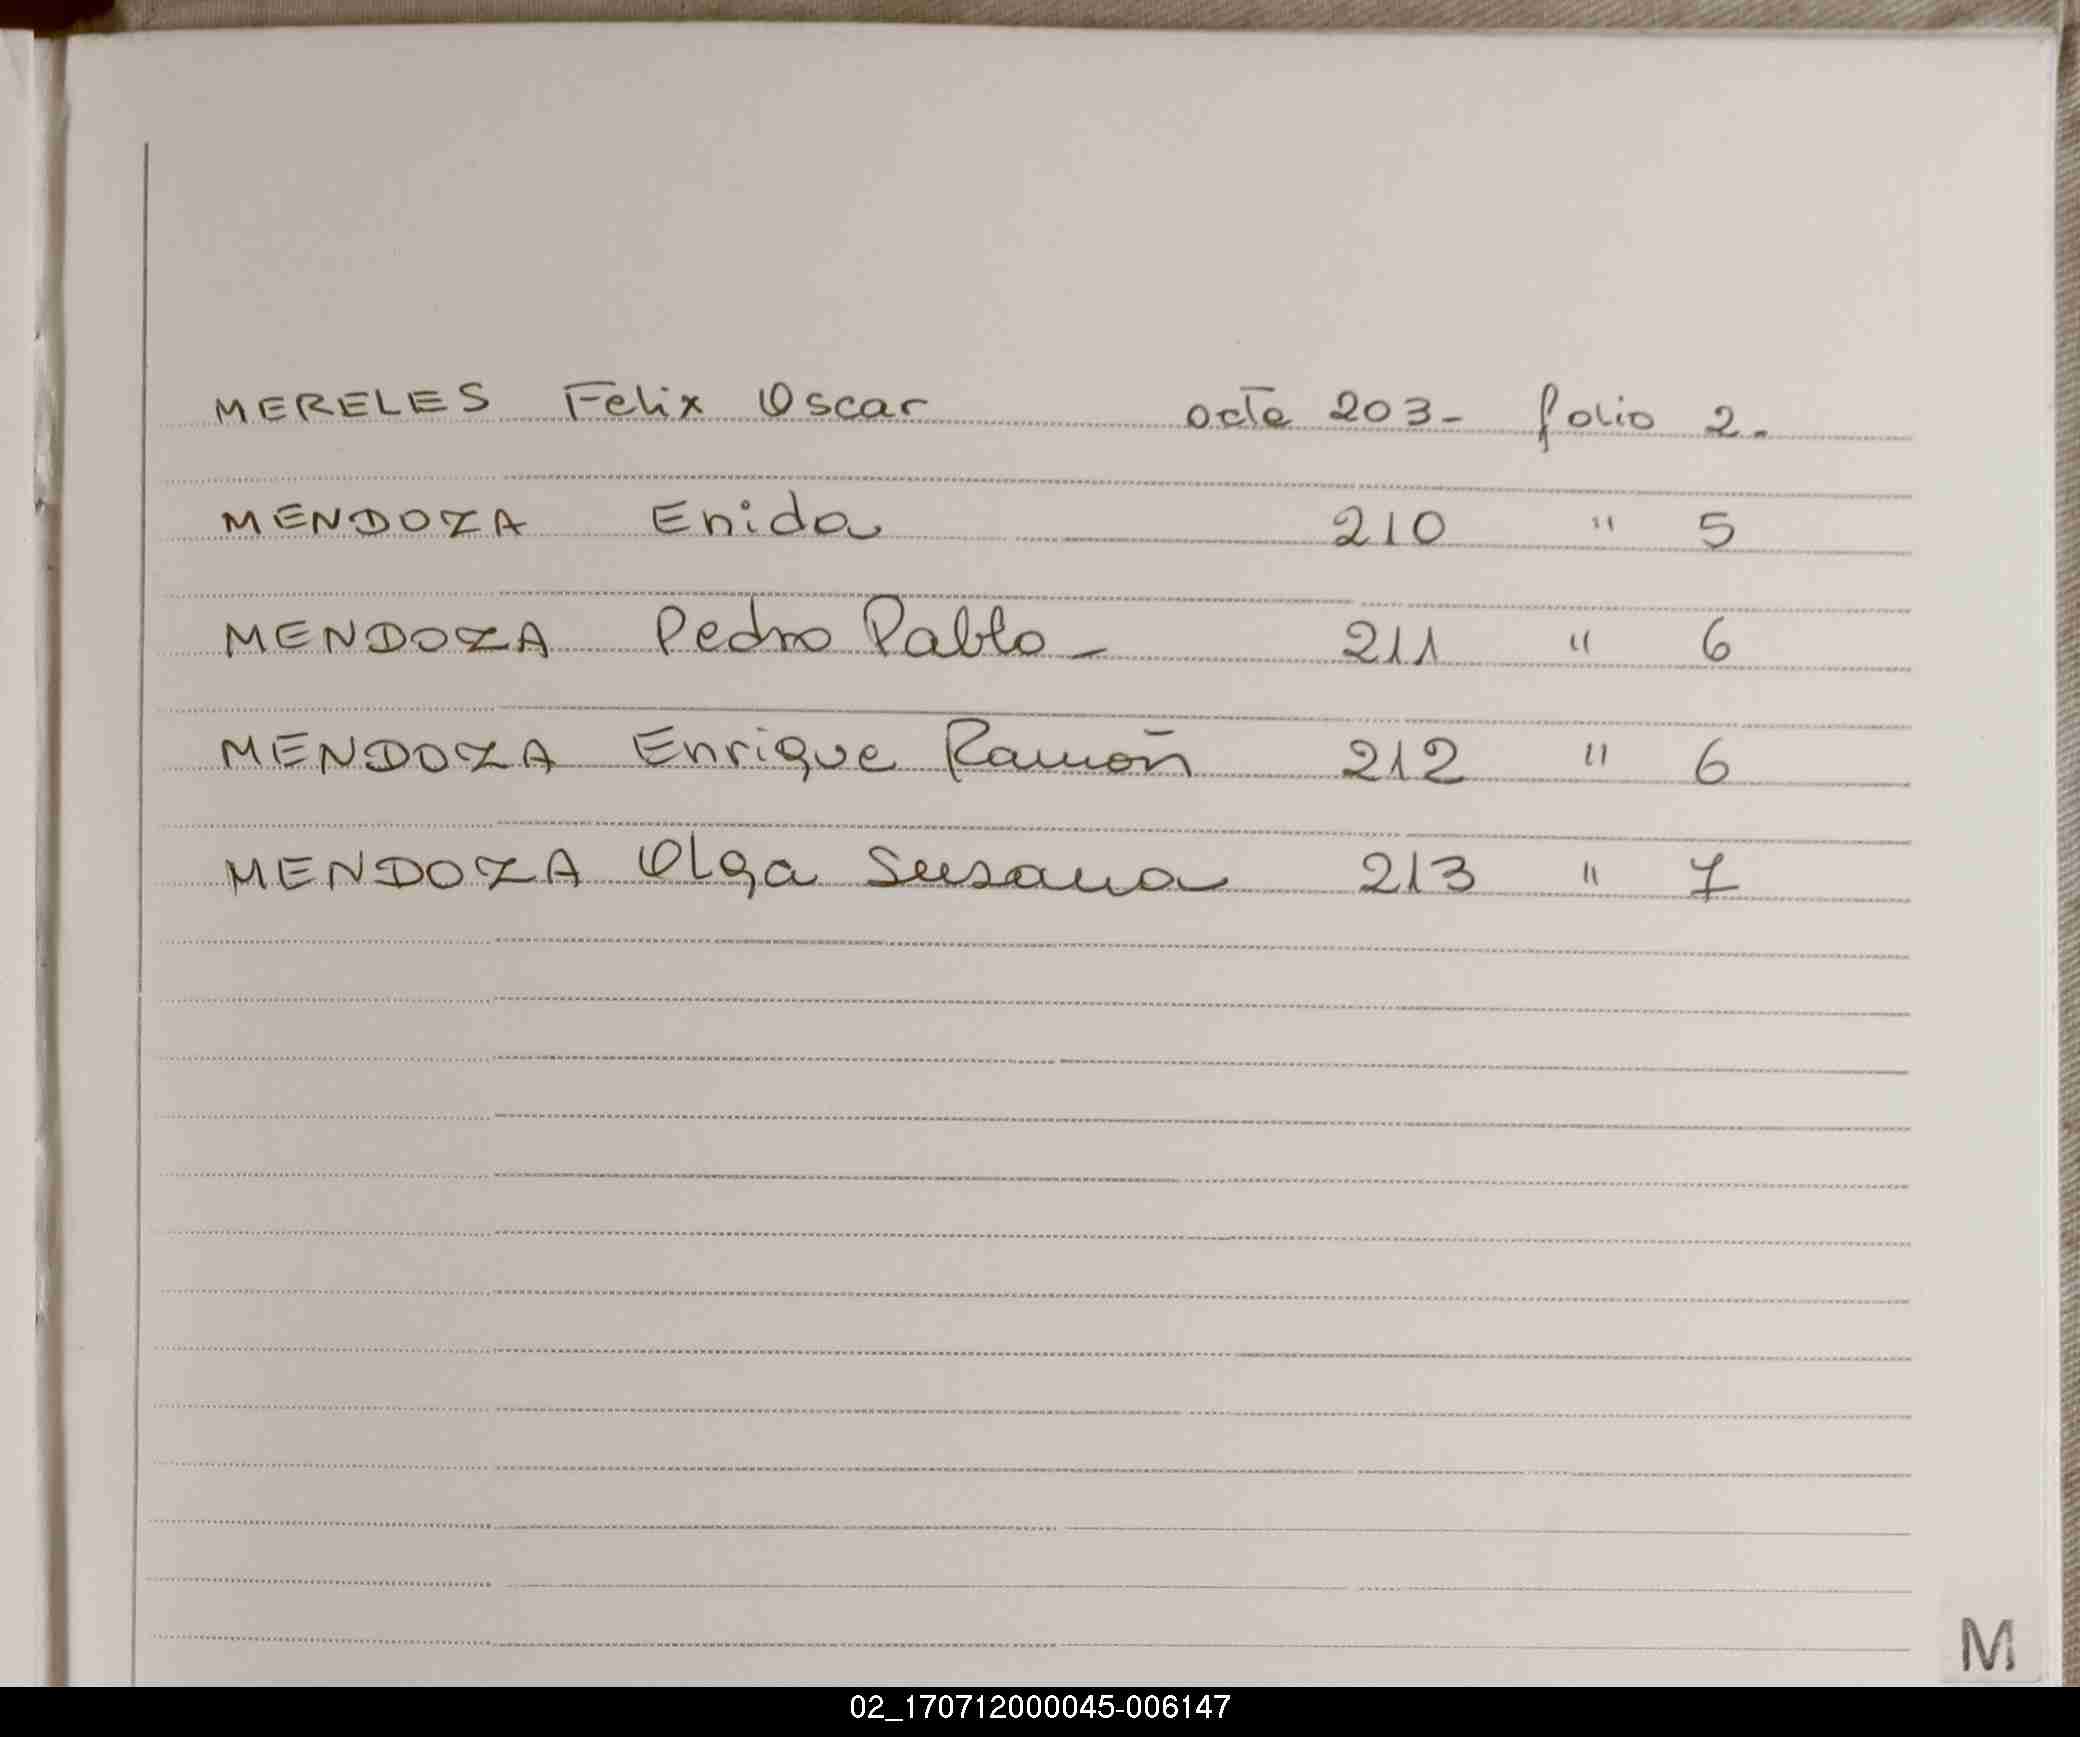 MERELES Felix Oscar acta 203- folio 2.
MENDOZA Enida 210 " 5
MENDOZA Pedro Pablo - 211 " 6
MENDOZA Enrique Ramón 212 " 6
MENDOZA Olga Susana 213 " 7
M
02_170712000045-006147